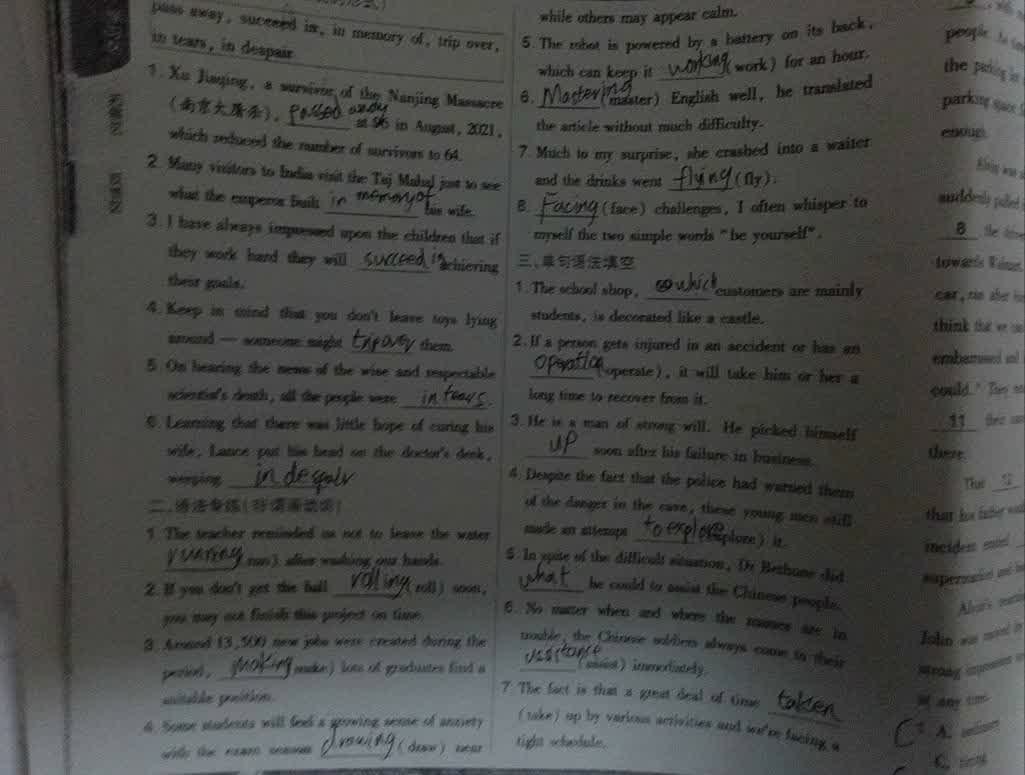 pass away, succeed in, in memory of, trip over,
in tears, in despair
1. Xu Jiaqing, a survivor of the Nanjing Massacre
(南京大屠杀), passed away at 96 in August, 2021,
which reduced the number of survivors to 64.
2. Many visitors to India visit the Taj Mahal just to see
what the emperor built in memory of his wife.
3. I have always impressed upon the children that if
they work hard they will succeed in achieving
their goals.
4. Keep in mind that you don't leave toys lying
around — someone might trip over them.
5. On hearing the news of the wise and respectable
scientist's death, all the people were in tears.
6. Learning that there was little hope of curing his
wife, Lance put his head on the doctor's desk,
weeping in despair
二、语法专练
1. The teacher reminded us not to leave the water
running (run) after washing our hands.
2. If you don't get the ball rolling (roll) soon,
you may not finish this project on time.
3. Around 13,500 new jobs were created during the
period, making (make) lots of graduates find a
suitable position.
4. Some students will feel a growing sense of anxiety
with the exam season drawing (draw) near
while others may appear calm.
5. The robot is powered by a battery on its back,
which can keep it working (work) for an hour.
6. Mastering (master) English well, he translated
the article without much difficulty.
7. Much to my surprise, she crashed into a waiter
and the drinks went flying (fly).
8. Facing (face) challenges, I often whisper to
myself the two simple words "be yourself".
三、单句语法填空
1. The school shop, which customers are mainly
students, is decorated like a castle.
2. If a person gets injured in an accident or has an
operation (operate), it will take him or her a
long time to recover from it.
3. He is a man of strong will. He picked himself
up soon after his failure in business.
4. Despite the fact that the police had warned them
of the danger in the cave, these young men still
made an attempt to explore (explore) it.
5. In spite of the difficult situation, Dr Bethune did
what he could to assist the Chinese people.
6. No matter when and where the masses are in
trouble, the Chinese soldiers always come to their
assistance (assist) immediately.
7. The fact is that a great deal of time taken
(take) up by various activities and we're facing a
tight schedule.
people.
the parking
parking space
enough.
suddenly pulled
8 the
towards
car, ran after
think that we
embarrassed and
could." They
11 their
there.
The 12
that his father
incident
supermarket and
John was
strong
at any time.
C A.
C.